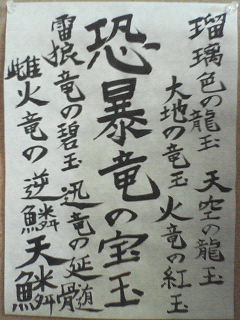 瑠璃色の龍玉 天空の龍玉
大地の竜玉 火竜の紅玉
恐暴竜の宝玉
雷狼竜の碧玉 迅竜の延髄
雌火竜の逆鱗 天鱗